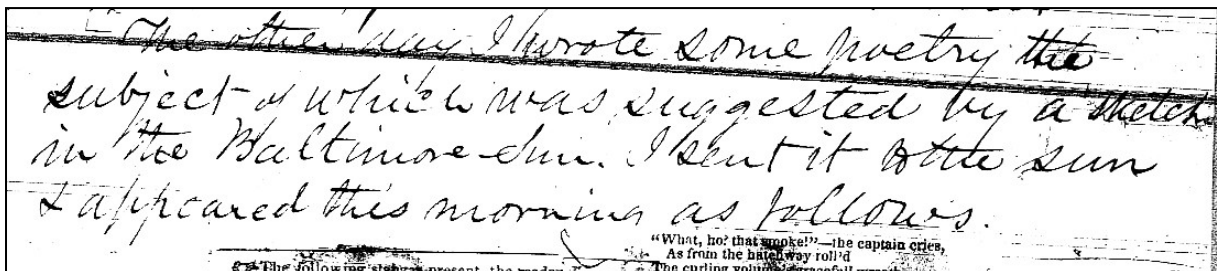 The other day I wrote some poetry the
subject of which was suggested by a sketch
in the Baltimore Sun. I sent it to the sun
& appeared this morning as follows.
"What, ho! that smoke!"—the captain cries,
As from the hatchway roll'd
The following present, the
The curling